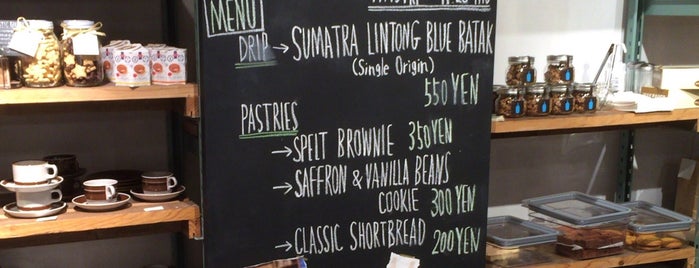 MENU
DRIP → SUMATRA LINTONG BLUE BATAK
(Single Origin)
550 YEN
PASTRIES
→ SPELT BROWNIE 350 YEN
→ SAFFRON & VANILLA BEANS
COOKIE 300 YEN
→ CLASSIC SHORTBREAD 200 YEN